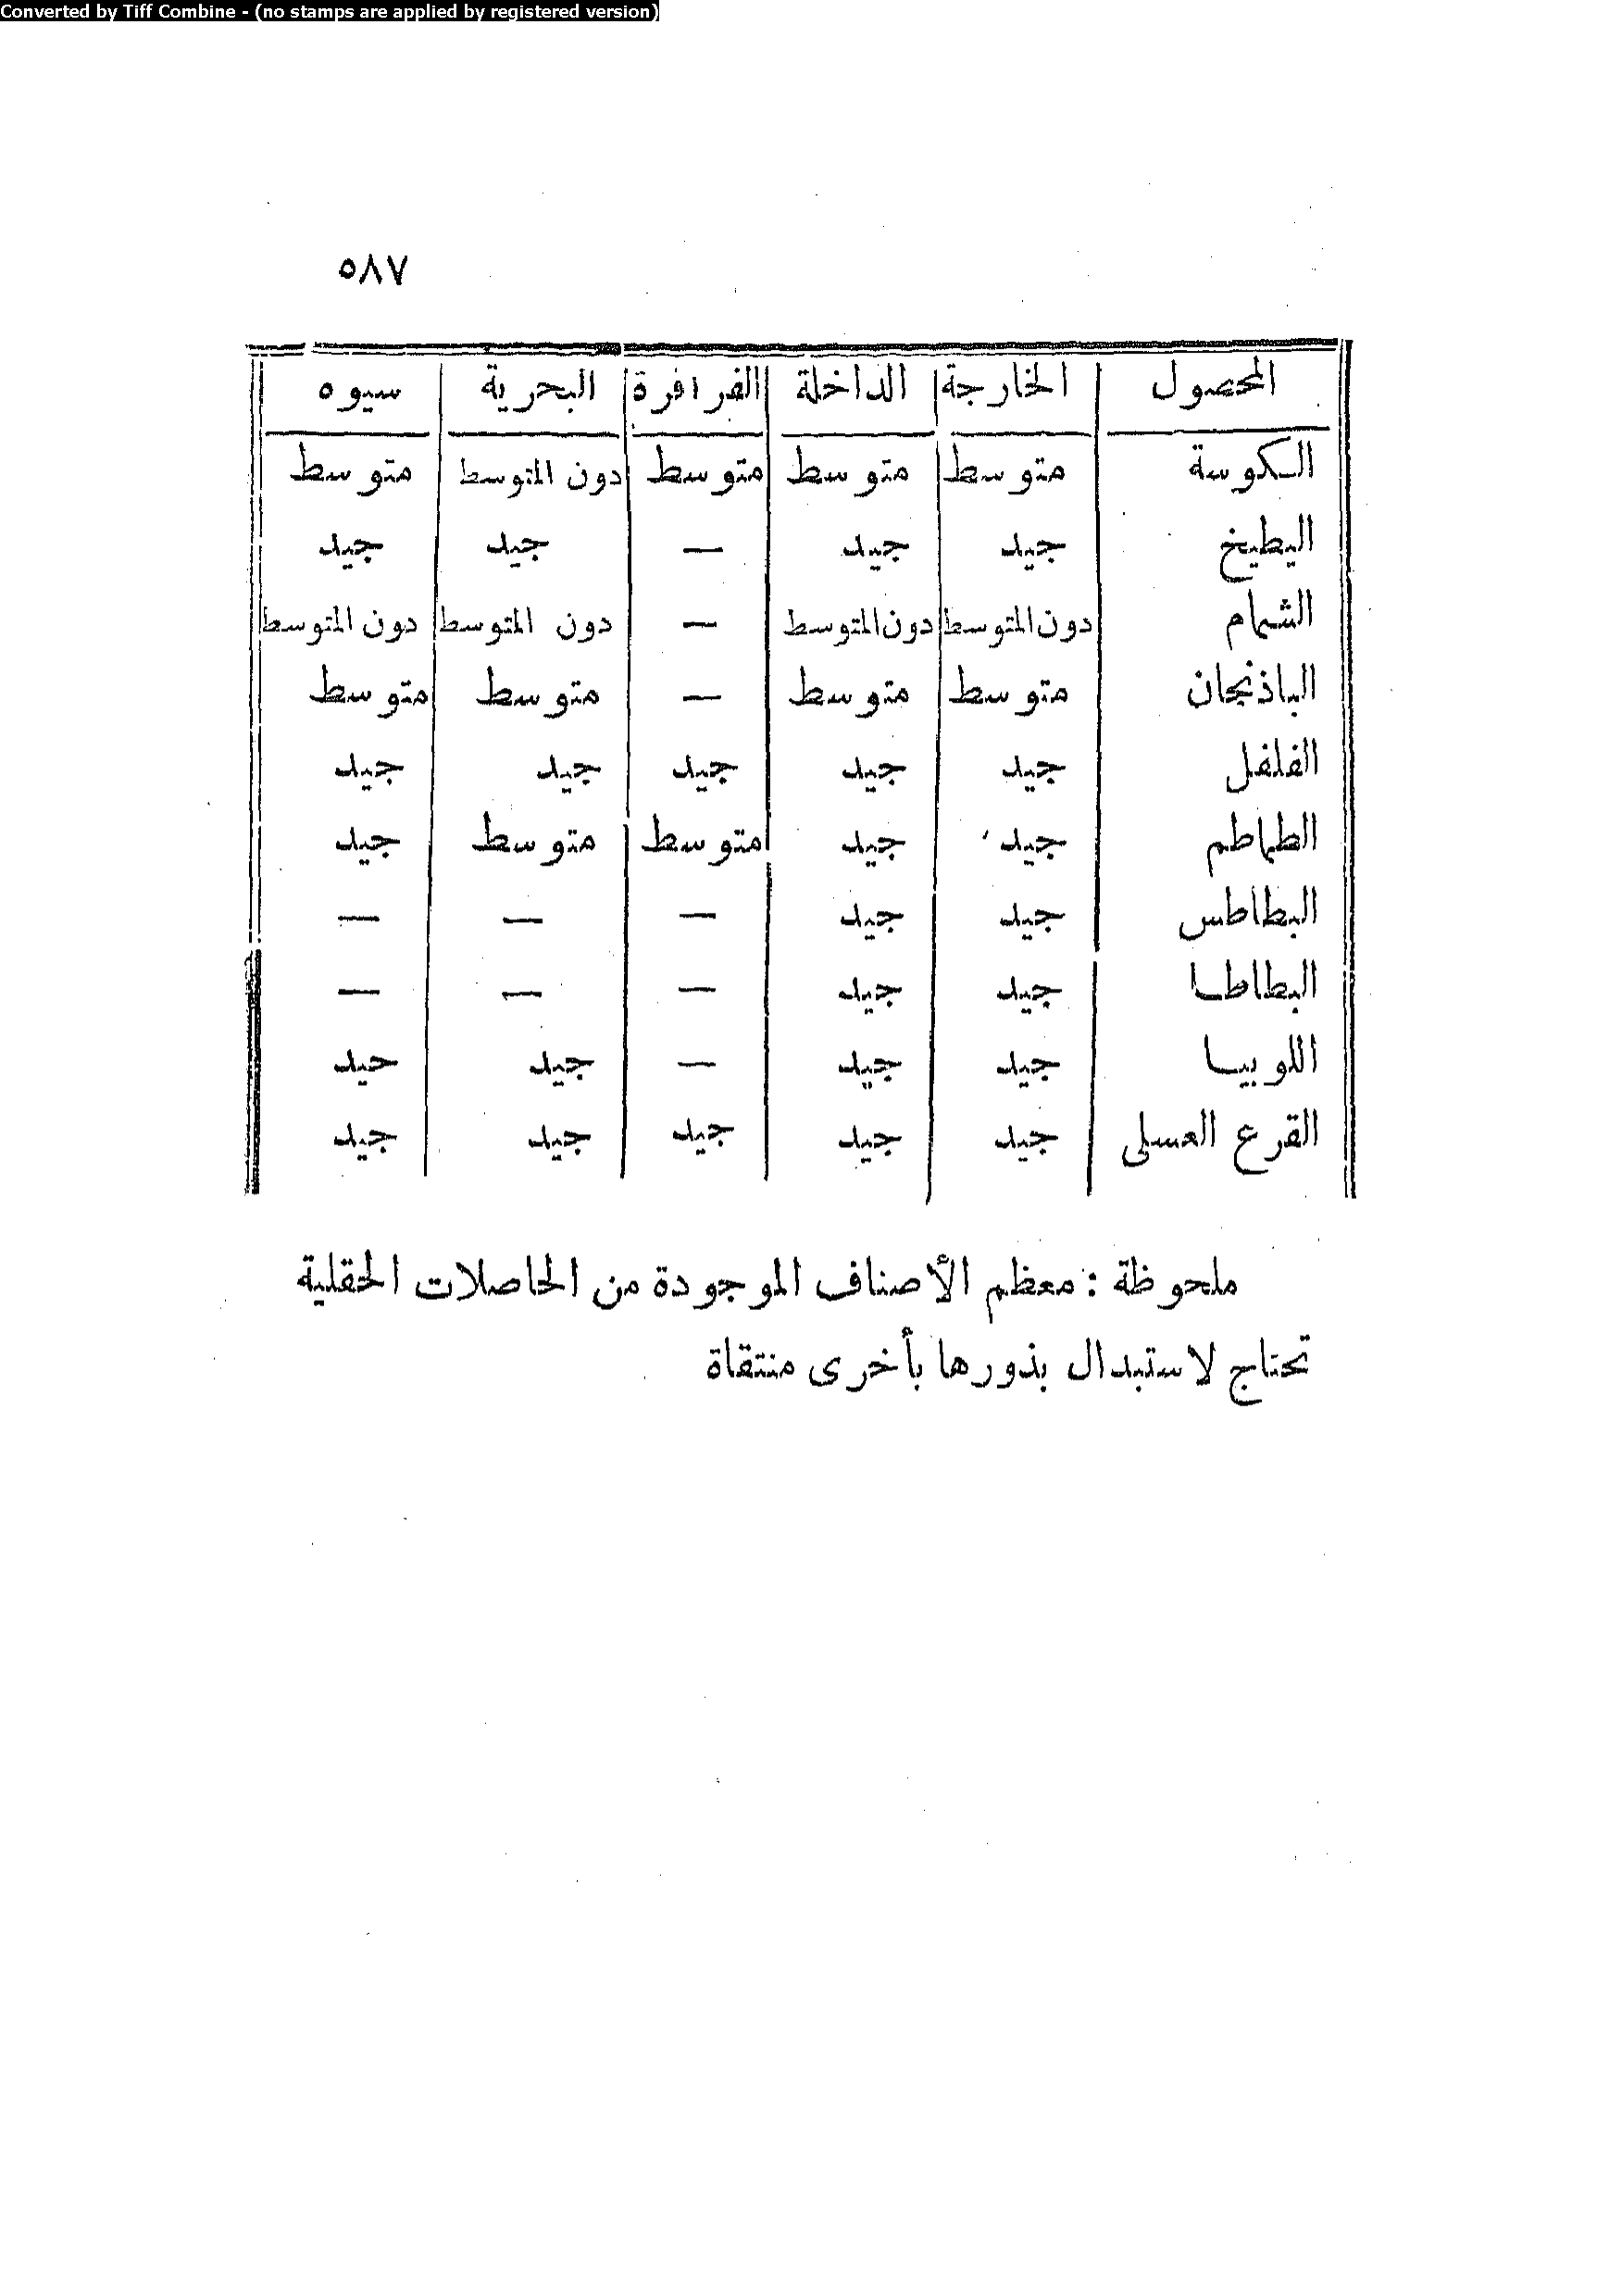 Converted by Tiff Combine - (no stamps are applied by registered version)
٥٨٧
المحصول | الخارجة | الداخلة | الفرافرة | البحرية | سيوه
الكوسة | متوسط | متوسط | متوسط | دون المتوسط | متوسط
البطيخ | جيد | جيد | — | جيد | جيد
الشمام | دون المتوسط | دون المتوسط | — | دون المتوسط | دون المتوسط
الباذنجان | متوسط | متوسط | — | متوسط | متوسط
الفلفل | جيد | جيد | جيد | جيد | جيد
الطماطم | جيد | جيد | متوسط | متوسط | جيد
البطاطس | جيد | جيد | — | — | —
البطاطا | جيد | جيد | — | — | —
اللوبيا | جيد | جيد | — | جيد | جيد
القرع العسلى | جيد | جيد | جيد | جيد | جيد
ملحوظة : معظم الأصناف الموجودة من الحاصلات الحقلية
تحتاج لاستبدال بذورها بأخرى منتقاة